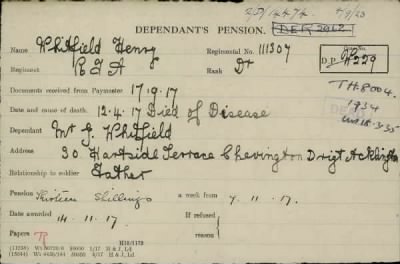 25/14474. 4/9/23
DEPENDANT'S PENSION.
Name Whitfield Henry Regimental No. 111307
Regiment R F A Rank Dr D.P. 4229
Documents received from Paymaster 17.9.17 TH8004.
Date and cause of death. 12.4.17 Died of Disease 1934
Dependant Mr J. Whitfield
Address 30 Hartside Terrace Chevington Drift Acklington
Relationship to soldier Father
Pension Thirteen Shillings a week from 7.11.17.
Date awarded 14.11.17. If refused
Papers reason
H16/1173
H & J, Ld
H & J, Ld